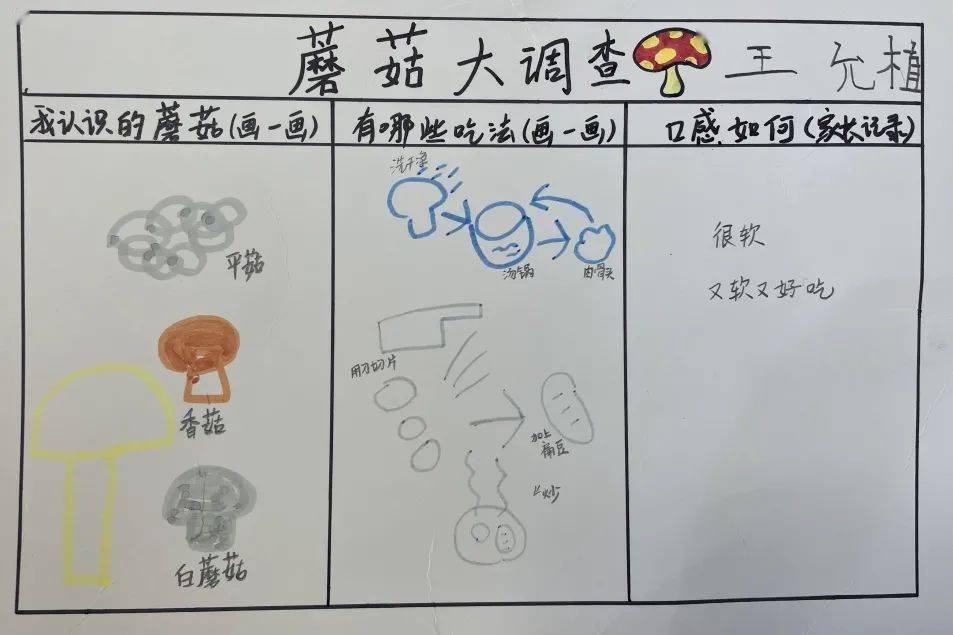 蘑菇大调查 王允植
我认识的蘑菇(画一画)
有哪些吃法(画一画)
口感如何(家长记录)
平菇
香菇
白蘑菇
洗干净
汤锅
肉骨头
用刀切片
加上
豌豆
炒
很软
又软又好吃